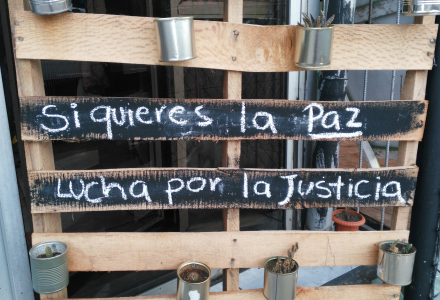 Si quieres la Paz
Lucha por la Justicia